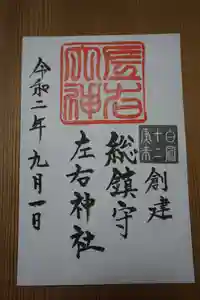 白鳳
十二
創建
総鎮守
左右神社
左右
大神
令和二年九月一日